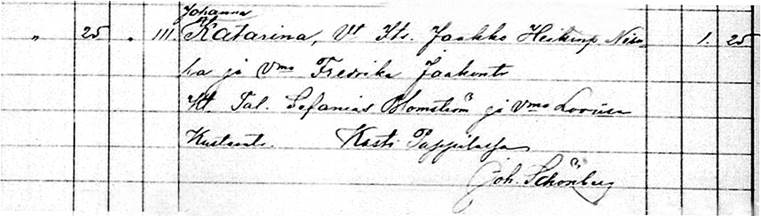 Johanna
" 25 " 111 Katarina, Vt Its. Jaakko Heikinp. Nis- 1. 25
ka ja Vmo Fredrika Jaakont.
Kt. Tal. Sefanias Blomström ja Vmo Loviisa
Kustaant. Kasti Pappilassa
Joh. Schönberg